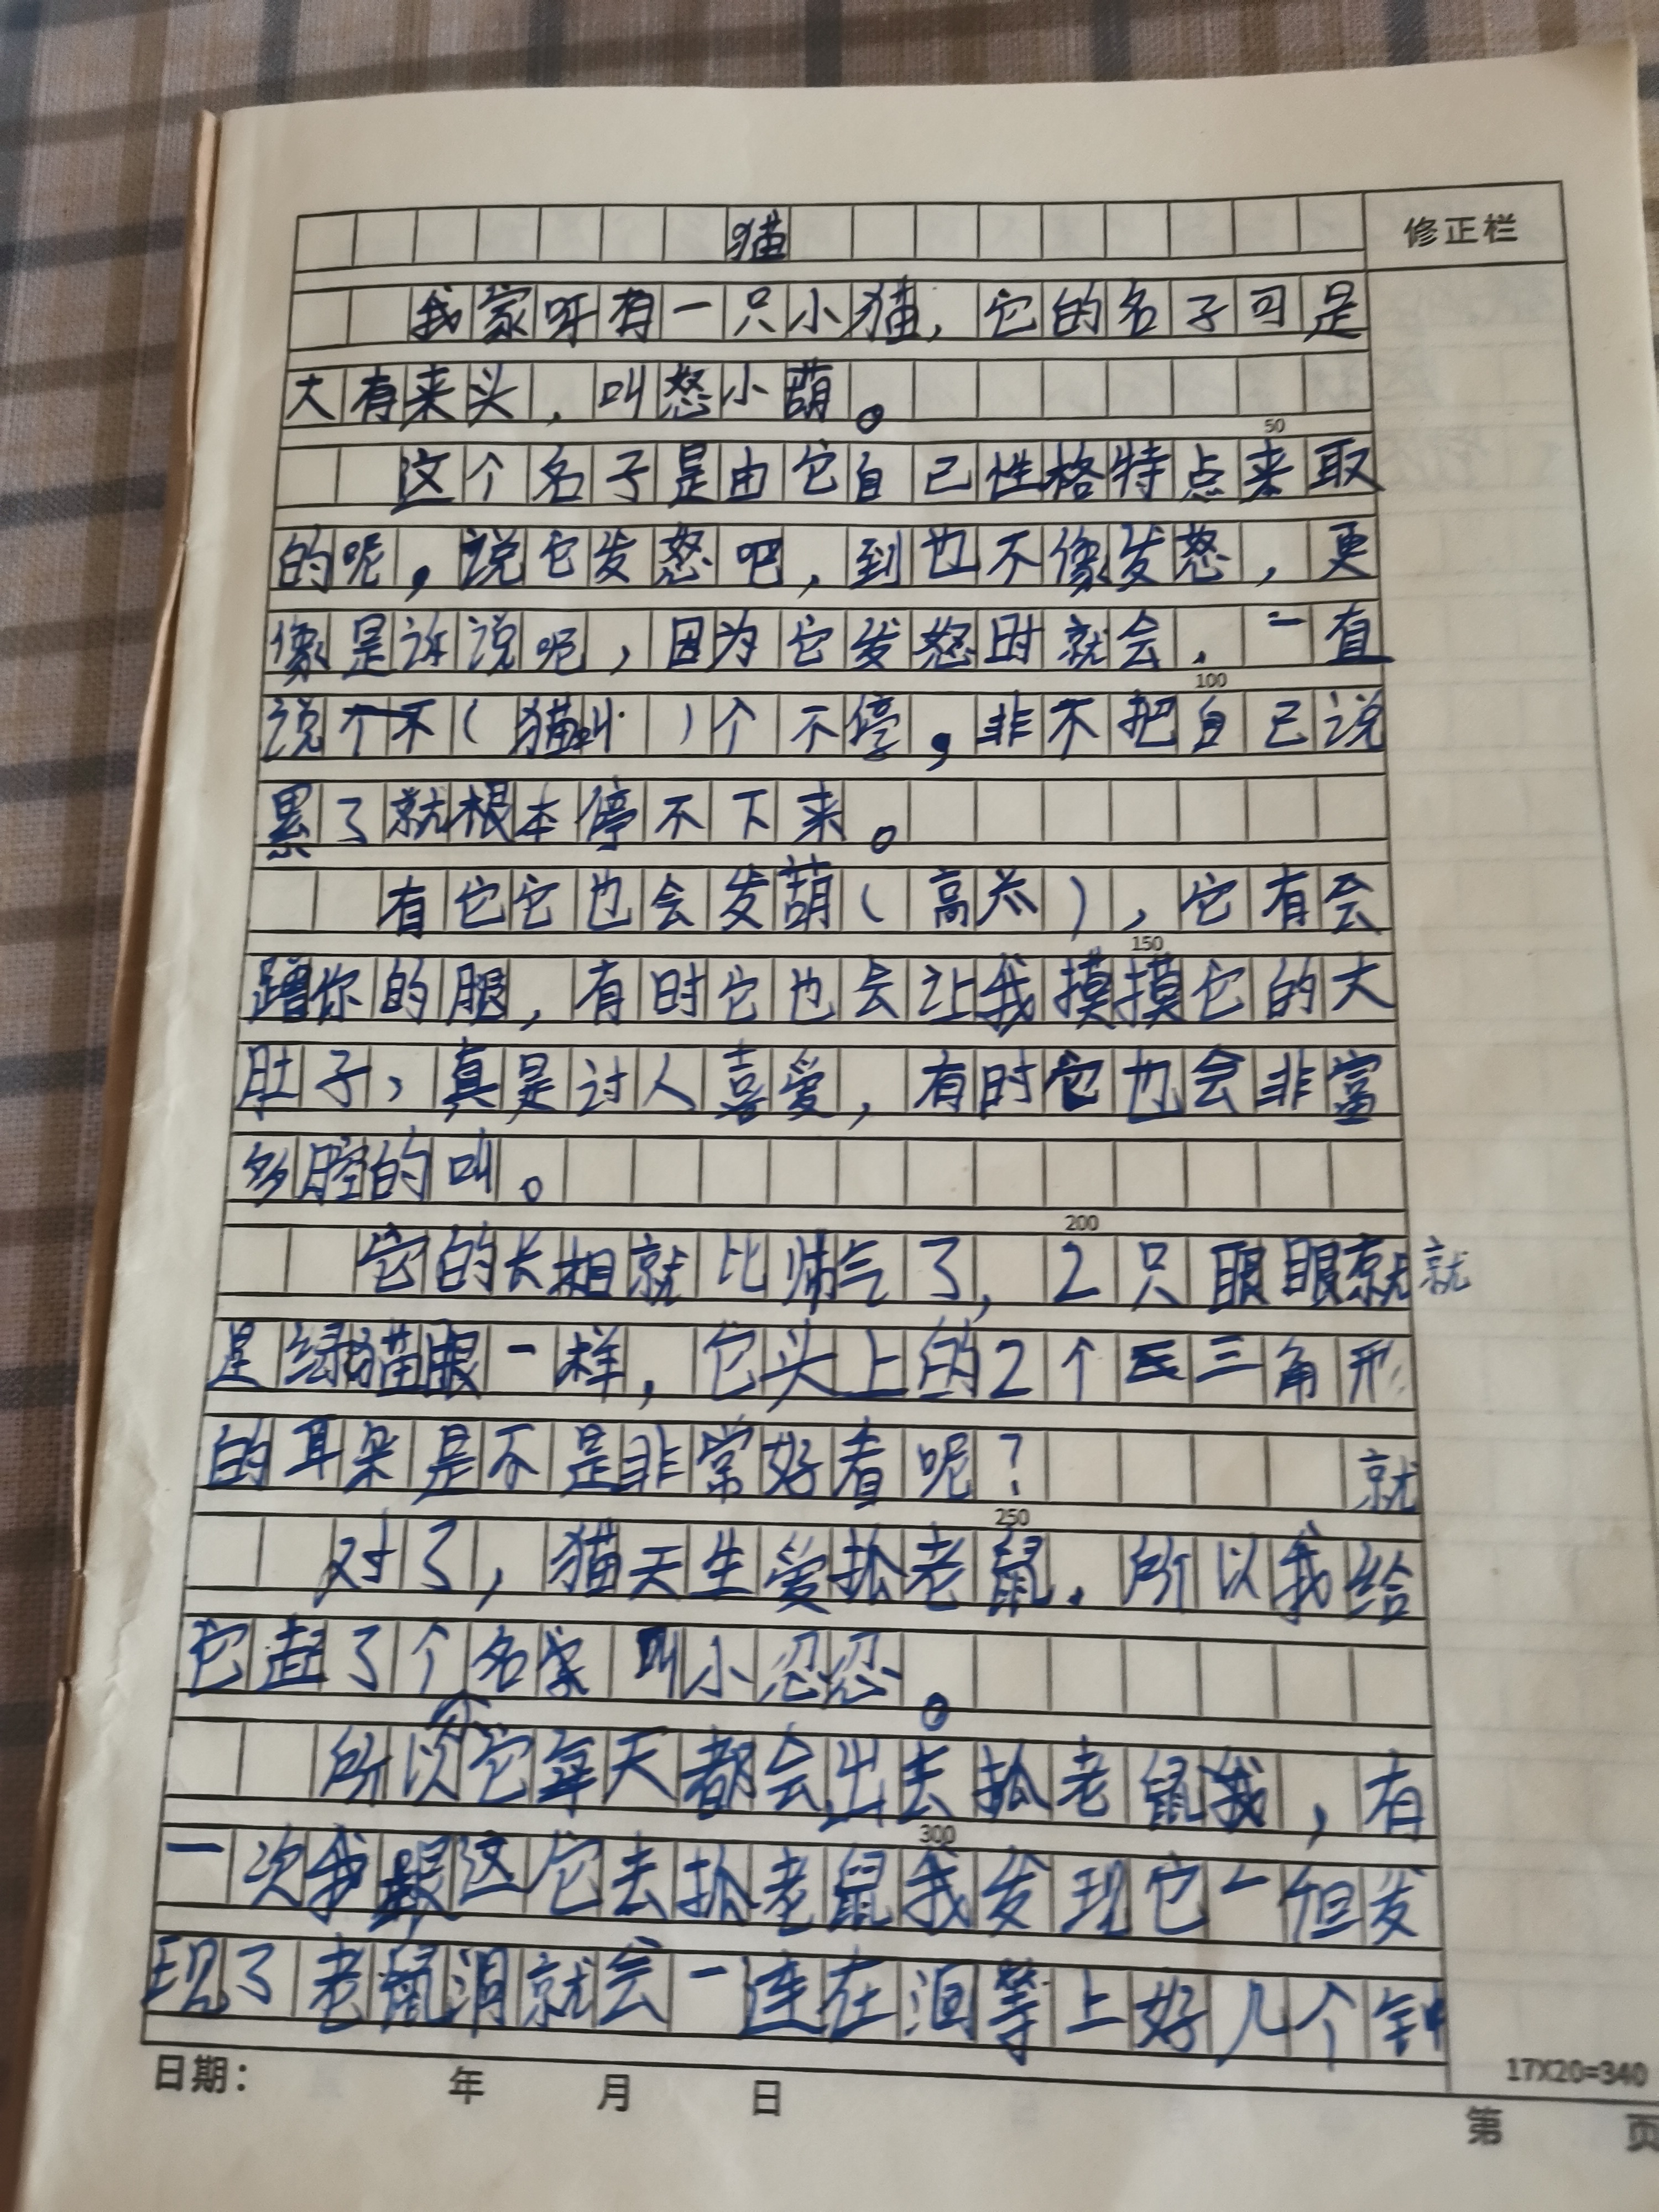 猫
修正栏
我家呀有一只小猫，它的名子可是
大有来头，叫怒小葫。
50
这个名子是由它自己性格特点来取
的呢，说它发怒吧，到也不像发怒，更
像是诉说呢，因为它发怒时就会，一直
100
说个不（猫叫）个不停，非不把自己说
累了就根本停不下来。
有它它也会发葫（高兴），它有会
150
蹭你的腿，有时它也会让我摸摸它的大
肚子，真是讨人喜爱，有时它也会非富
多腔的叫。
200
它的长相就比帅气了，2只眼眼就就
是绿猫眼一样，它头上的2个三角形
的耳朵是不是非常好看呢？ 就
250
对了，猫天生爱抓老鼠，所以我给
它起了个名字叫小忍忍。
所以它每天都会出去抓老鼠我，有
300
一次我跟这它去抓老鼠我发现它一但发
现了老鼠洞就会一连在洞等上好几个钟
日期： 年 月 日
17X20=340
第 页